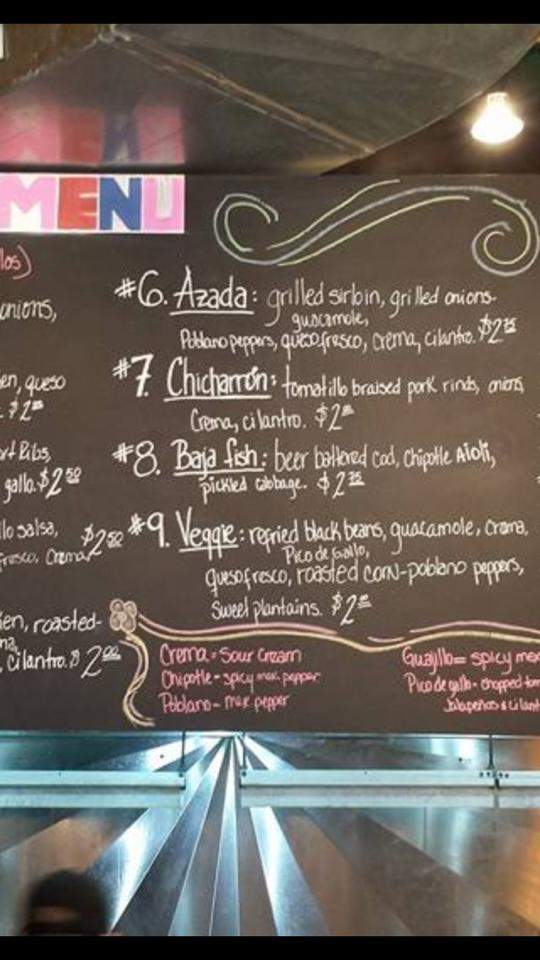 MENU
los)
onions,
en, queso
rt Ribs,
gallo. $2.50
llo salsa,
fresco, Crema $2.50
ien, roasted-
cilantro. $2.00
#6. Azada: grilled sirloin, grilled onions-
guacamole,
Poblano peppers, queso fresco, crema, cilantro. $2.75
#7. Chicharrón: tomatillo braised pork rinds, onions,
Crema, cilantro. $2
#8. Baja fish: beer battered cod, Chipotle Aioli,
pickled cabbage. $2.75
#9. Veggie: refried black beans, guacamole, Crema,
Pico de Gallo,
queso fresco, roasted corn-poblano peppers,
Sweet plantains. $2
Crema = Sour Cream
Chipotle - spicy mex. pepper
Poblano - mex pepper
Guajillo = spicy mex
Pico de gallo - chopped tom
Jalapeños & cilant